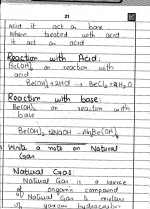 21
acid it act as base
when treated with acid
it act as acid
Reaction with Acid:
Be(OH)₂ on reaction with
acid
Be(OH)₂+2HCl → BeCl₂+2H₂O
Reaction with base:
Be(OH)₂ on reaction with
base
Be(OH)₂ +2NaOH → Na₂BeO₂
Write a note on Natural
Gas
Natural Gas:
Natural Gas is a source
of organic compound
Natural Gas is mixture
of hydrocarbon